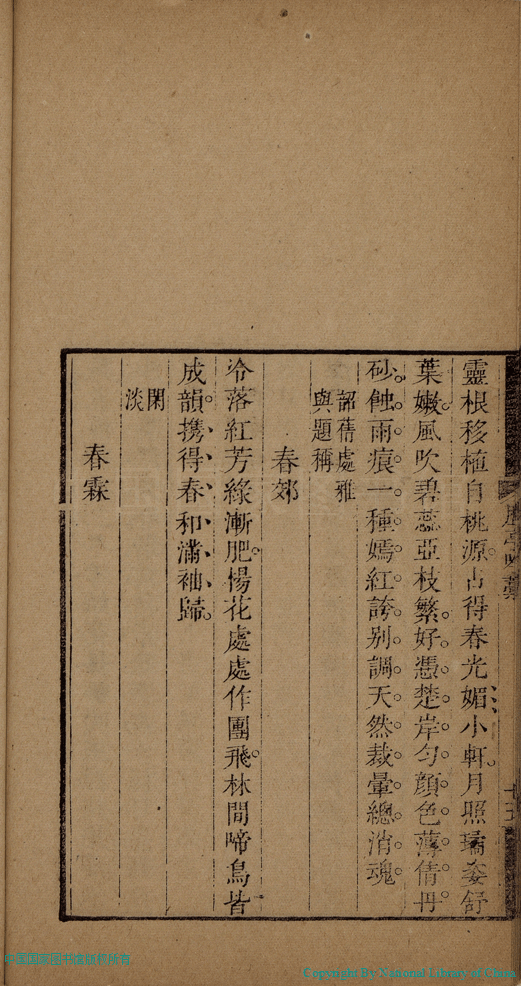 靈根移植自桃源占得春光媚小軒月照瑤姿舒
葉嫩風吹碧蕊亞枝繁好憑楚岸勻顏色薄倩丹
砂蝕雨痕一種嫣紅誇別調天然裁暈總消魂
韶蒨處雅
與題稱
春郊
冷落紅芳綠漸肥楊花處處作團飛林間啼鳥皆
成韻携得春和滿袖歸
閑
淡
春霖
Copyright By National Library of China